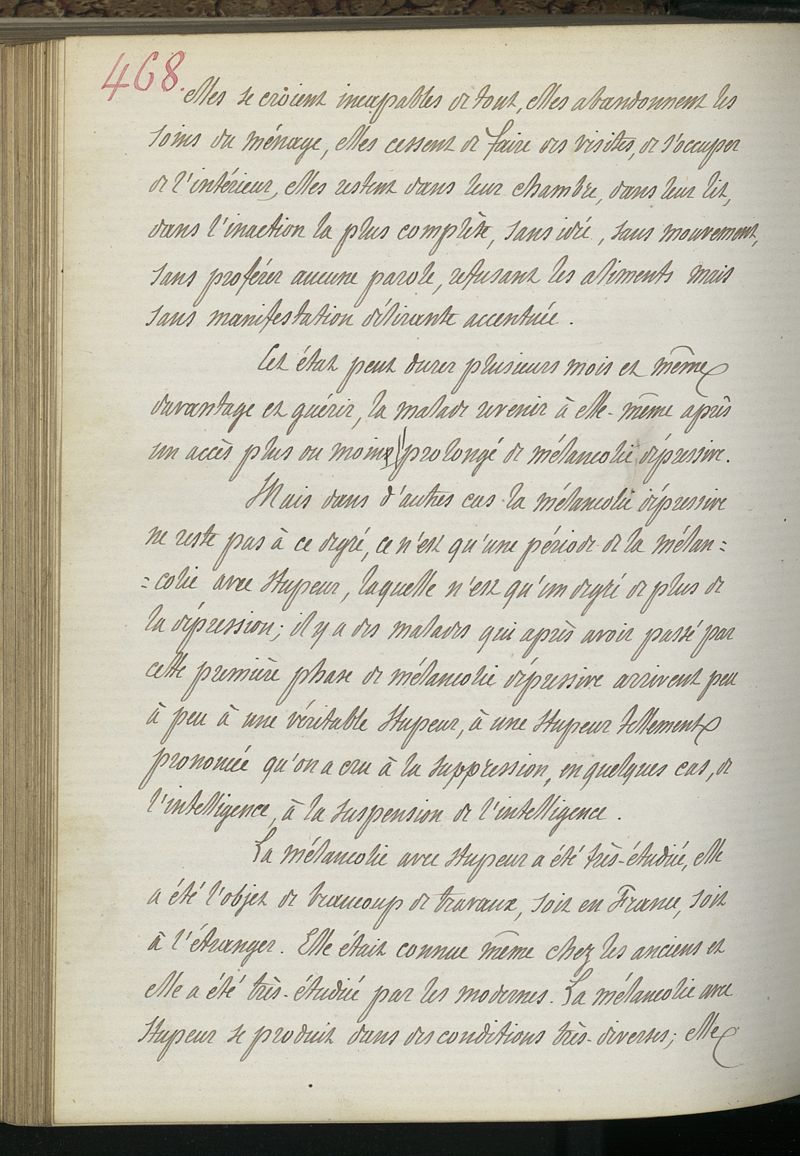 468.
elles se croient incapables de tout, elles abandonnent les
soins du ménage, elles cessent de faire des visites, de s'occuper
de l'intérieur, elles restent dans leur chambre, dans leur lit,
dans l'inaction la plus complète, sans idée, sans mouvement,
sans proférer aucune parole, refusant les aliments mais
sans manifestation délirante accentuée.
Cet état peut durer plusieurs mois et même
davantage et guérir, la malade revenir à elle-même après
un accès plus ou moins prolongé de mélancolie dépressive.
Mais dans d'autres cas la mélancolie dépressive
ne reste pas à ce degré, ce n'est qu'une période de la mélan=
=colie avec stupeur, laquelle n'est qu'un degré de plus de
la dépression; il y a des malades qui après avoir passé par
cette première phase de mélancolie dépressive arrivent peu
à peu à une véritable stupeur, à une stupeur tellement
prononcée qu'on a cru à la suppression, en quelques cas, de
l'intelligence, à la suspension de l'intelligence.
La mélancolie avec stupeur a été très-étudiée, elle
a été l'objet de beaucoup de travaux, soit en France, soit
à l'étranger. Elle était connue même chez les anciens et
elle a été très-étudiée par les modernes. La mélancolie avec
stupeur se produit dans des conditions très-diverses; elle